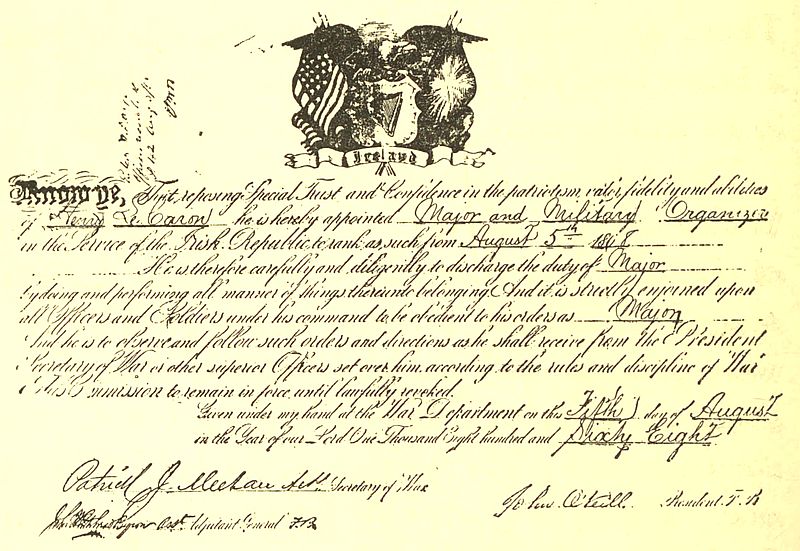 Ireland
Know ye, That, reposing Special Trust and Confidence in the patriotism, valor, fidelity and abilities
of Henry Le Caron he is hereby appointed Major and Military Organizer
in the Service of the Irish Republic to rank as such from August 5th 1868
He is therefore carefully and diligently to discharge the duty of Major
by doing and performing all manner of things thereunto belonging. And it is strictly enjoined upon
all Officers and Soldiers under his command to be obedient to his orders as Major
And he is to observe and follow such orders and directions as he shall receive from the President
Secretary of War or other superior Officers set over him, according to the rules and discipline of War
This Commission to remain in force until lawfully revoked.
Given under my hand at the War Department on this Fifth day of August
in the Year of our Lord One Thousand Eight hundred and Sixty Eight
Patrick J. Meehan Act. Secretary of War
John O'Neill. President. F. B
Asst. Adjutant General F.B